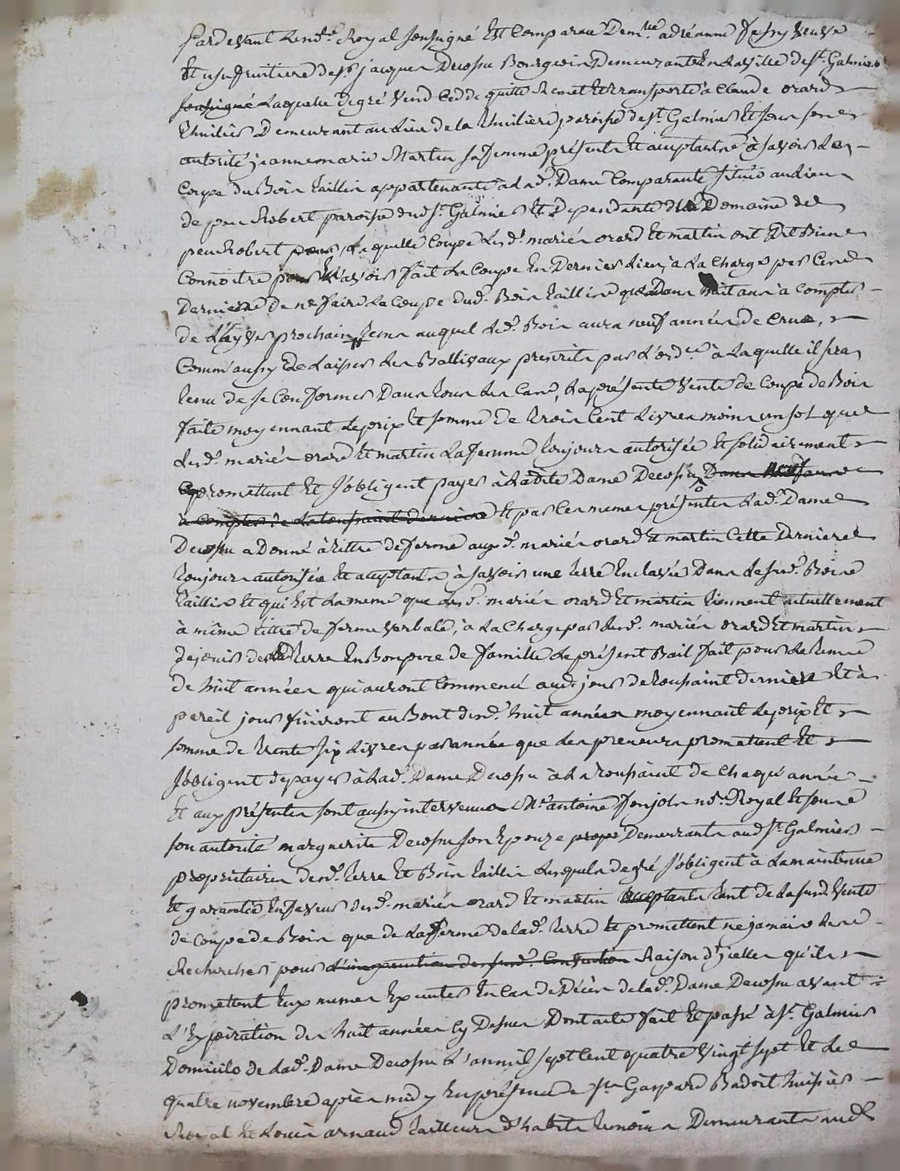 Pardevant le nore. Royal soussigné Est Comparue Demlle adréanne fessy veuve
Et usufruitiere de sr jacques Decosne Bourgeois Demeurante En la ville de st. Galmier
soussigné Laquelle de gré vend Cedde quitte Remet Et transporte à Claude orard
Thuilier Demeurant au Lieu de la thuiliere paroisse de st. Galmier Et sous son
autorité jeanne marie Martin sa femme présente Et acceptante à savoir La
Coupe du Bois taillis appartenante à lade. Dame Comparante situé au lieu
de peu Robert paroisse dud. st. Galmier Et dépendante du Domaine de
peu Robert Laquelle Coupe Lesd. mariés orard Et martin ont Dit Bien
Connoitre pour L'avoir fait La Coupe En Dernier lieu, à La Charge par Ces
Derniers de ne faire La Coupe dud. Bois taillis que Dans huit ans à Compter
de L'hyver prochain, tems auquel Led. Bois aura neuf années de Crue,
Comm'aussy de Laisser Les Ballivaux prescrits par L'ordce à Laquelle il sera
tenu de se Conformer Dans tous Les Cas, La présente vente de Coupe de Bois
faite moyennant Le prix Et somme de trois Cent Livres moins un sol que
Lesd. mariés orard Et martin La femme toujours autorisée Et solidairement
promettent Et s'obligent payer à Ladite Dame Decosne Dans
à Compter de La toussaint derniere Et par Ces memes présentes Lad. Dame
Decosne a Donné à titre de ferme auxd. mariés orard Et martin Cette Derniere
toujours autorisée Et acceptante à savoir une terre Enclavée Dans Le sud. Bois
taillis Et qui Est La meme que Lesd. mariés orard Et martin tiennent actuellement
à même titre de ferme verbale, à La Charge par Lesd. mariés orard Et martin
de jouir de lad. terre En Bon pere de famille Le présent Bail fait pour Le tems
de huit années qui auront Commencé aud. jour de toussaint dernier Et à
pareil jour finiront au Bout desd. huit années moyennant Le prix Et
somme de trente six Livres par année que Les preneurs promettent Et
s'obligent de payer à Lad. Dame Decosne à La toussaint de Chaqu'année
Et aux présentes sont aussy intervenus Me. antoine Ronjot nre. Royal Et sous
son autorité marguerite Decosne son Epouze Demeurants aud. st. Galmier
propriétaires desd. terre Et Bois taillis Lesquels de gré s'obligent à La maintenue
Et garantie En faveur desd. mariés orard Et martin acceptants tant de La sud. vente
de Coupe de Bois que de La ferme de lad. terre Et promettent ne jamais Les
Rechercher pour Raison d'icelles qu'ils
promettent Eux memes Executer En Cas de Décès de lad. Dame Decosne avant
L'Expiration des huit années Cy Dessus Dont acte fait Et passé à st. Galmier
Domicile de lad. Dame Decosne L'an mil sept Cent quatre vingt sept Et Le
quatre novembre après midy En présence de sr. Gaspard Badoit huissier
Royal Et Louis arnaud tailleur d'habits temoins Demeurants aud.